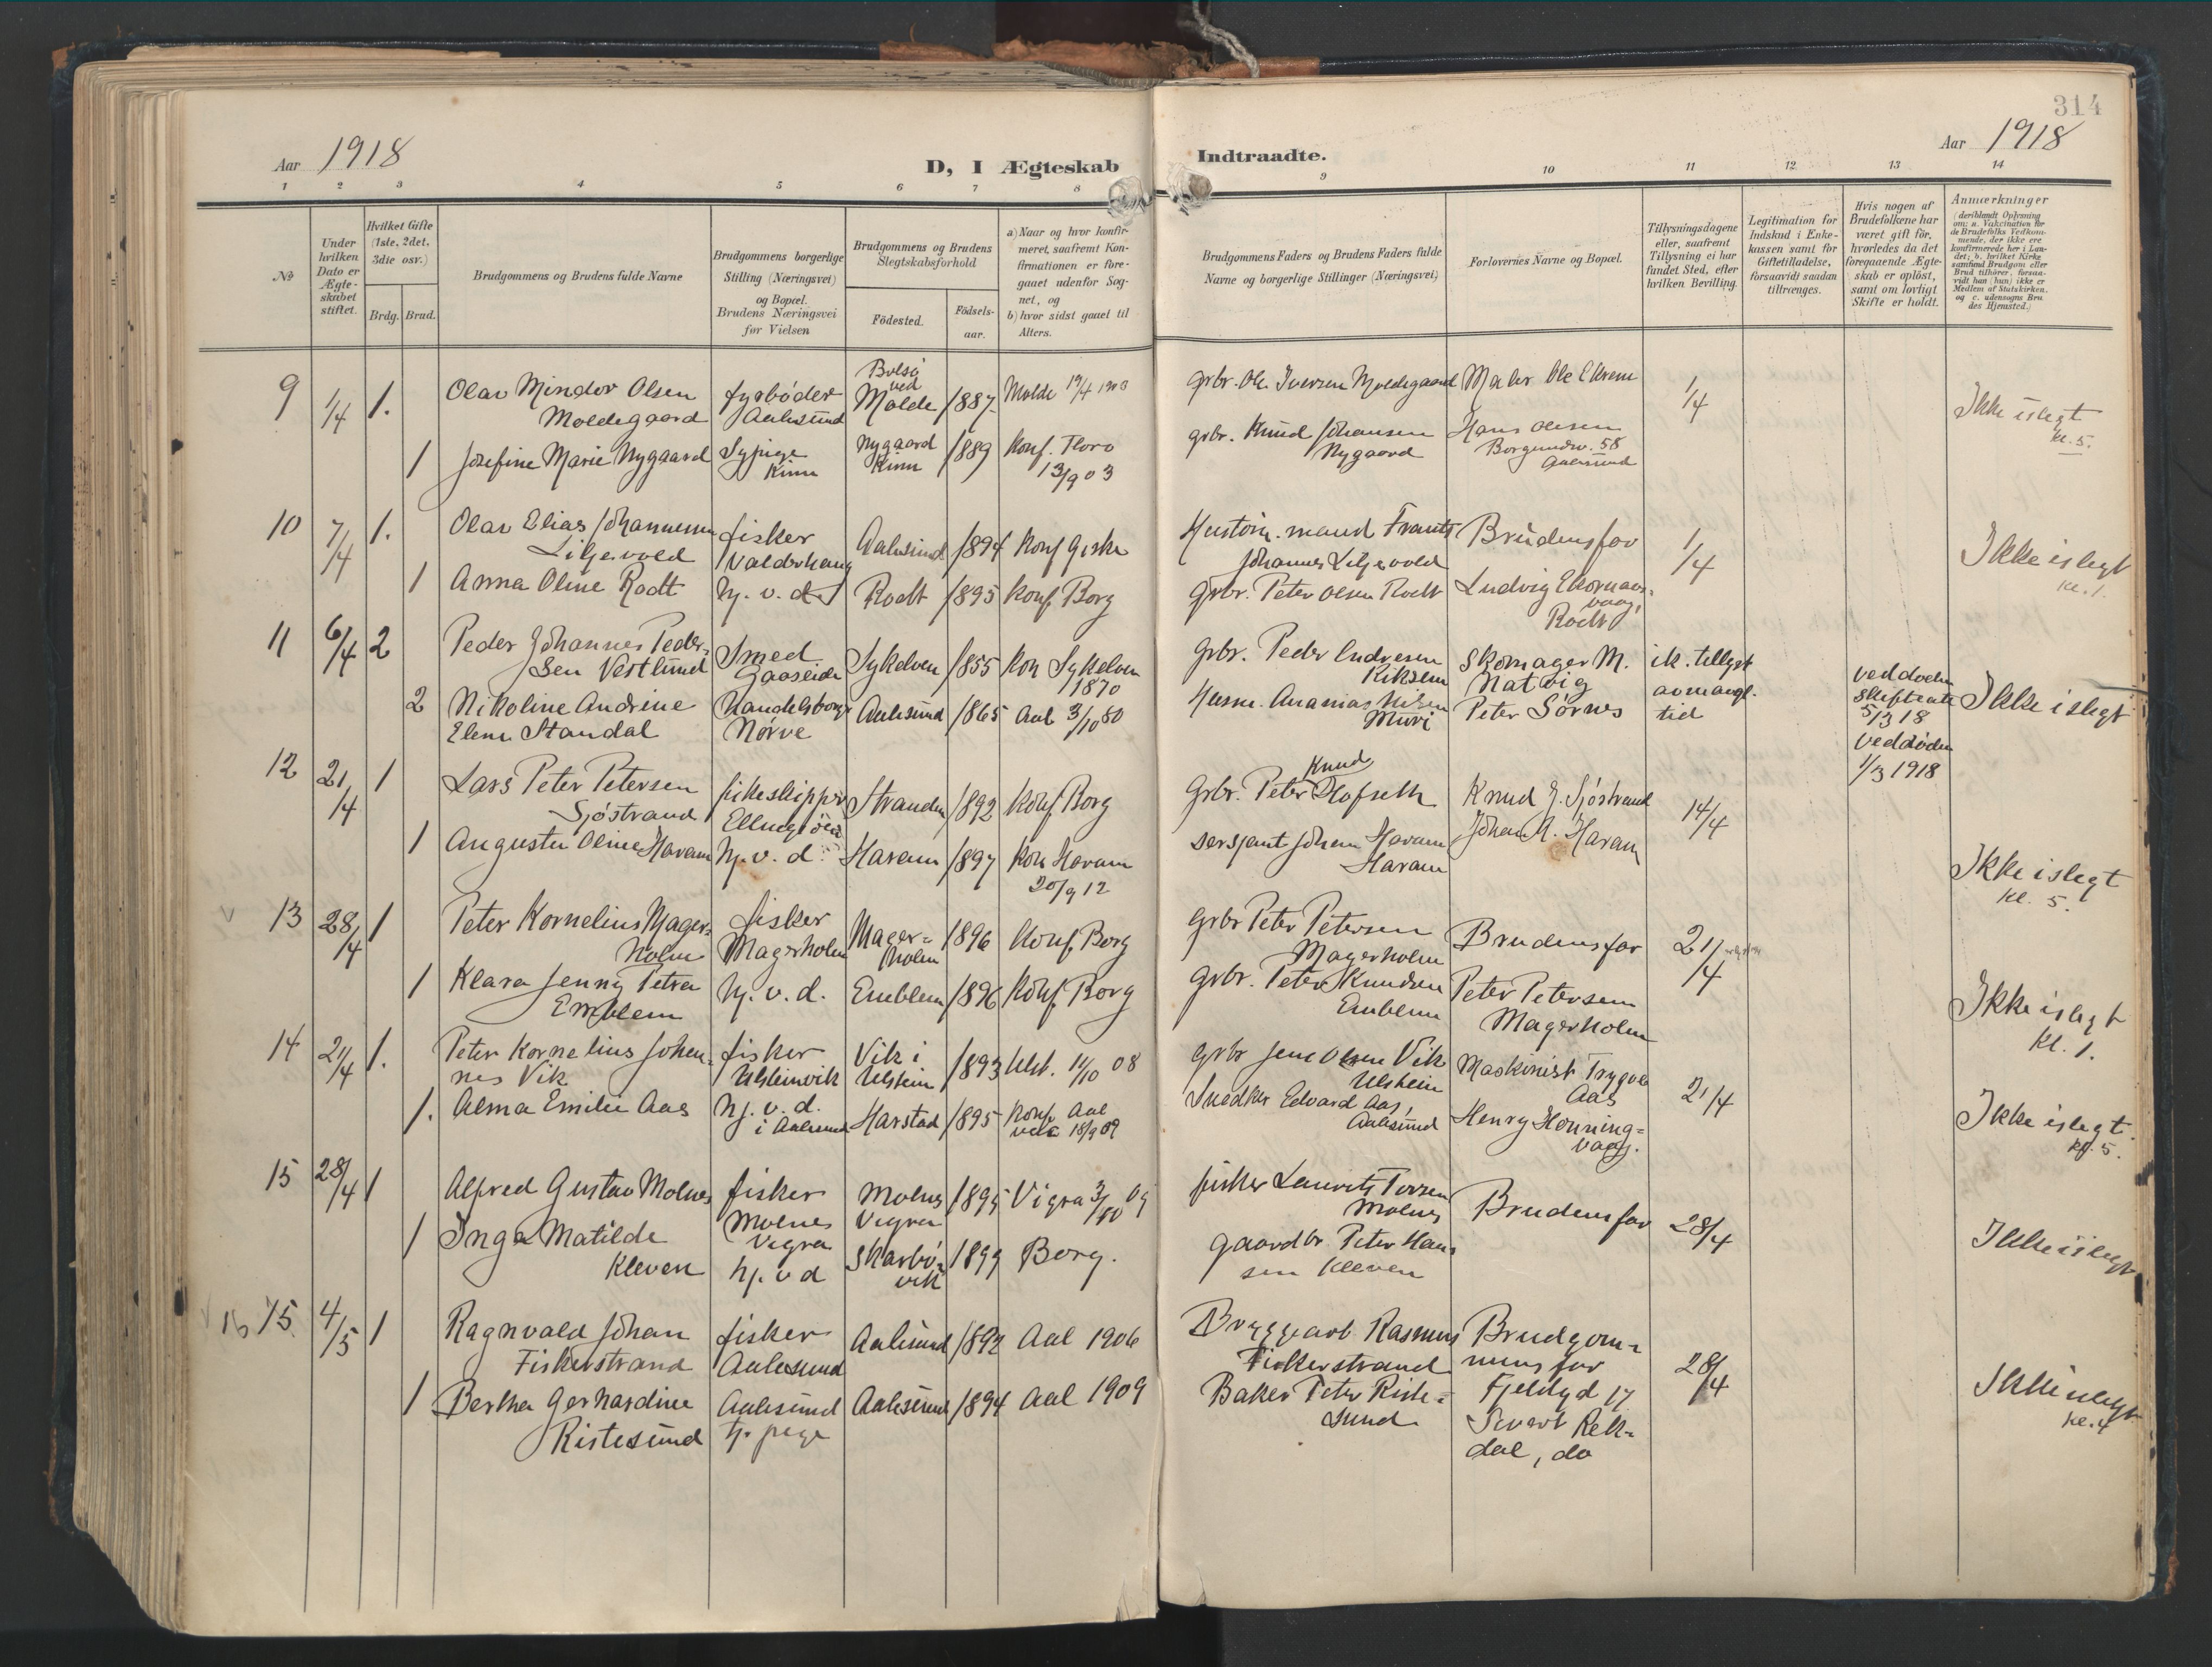 314
Aar 1918
D, I Ægteskab
Indtraadte.
Aar 1918
1 2 3 4 5 6 7 8 9 10 11 12 13 14
No
Under hvilken Dato er Ægteskabet stiftet.
Hvilket Gifte (1ste, 2det, 3die osv.)
Brdg. Brud.
Brudgommens og Brudens fulde Navne
Brudgommens borgerlige Stilling (Næringsvei) og Bopæl. Brudens Næringsvei før Vielsen
Brudgommens og Brudens Slegtskabsforhold
Fødested. Fødsels-aar.
a) Naar og hvor konfirmeret, saafremt Konfirmationen er foregaaet udenfor Sognet, og
b) hvor sidst gaaet til Alters.
Brudgommens Faders og Brudens Faders fulde Navne og borgerlige Stillinger (Næringsvei)
Forlovernes Navne og Bopæl.
Tillysningsdagene eller, saafremt Tillysning ei har fundet Sted, efter hvilken Bevilling.
Legitimation for Indskud i Enkekassen samt for Giftetilladelse, forsaavidt saadan tiltrænges.
Hvis nogen af Brudefolkene har været gift før, hvorledes da det foregaaende Ægteskab er opløst, samt om lovligt Skifte er holdt.
Anmærkninger
(deriblandt Oplysning om: a. Vakcination for de Brudefolks Vedkommende, der ikke ere konfirmerede her i Landet; b. hvilket Kirkesamfund Brudgom eller Brud tilhører, forsaavidt han (hun) ikke er Medlem af Statskirken, og c. udensogns Brudes Hjemsted.)
9 1/4 1. Olav Mindor Olsen Moldegaard fyrbøder Aalesund Bolsø ved Molde 1887 Molde 19/4 1903 grbr. Ole Iversen Moldegaard Maler Ole Ekrem 1/4 Ikke i slegt kl. 5.
1 Josefine Marie Nygaard Sypige Kinn Nygaard Kinn 1889 Konf. Floro 13/9 03 grbr. Knud Johansen Nygaard Hans Olesen Borgundv. 58 Aalesund
10 7/4 1. Olav Elias Johannesen Liljevold fisker Valderhaug Aalesund 1894 Konf Giske Johannes Liljevold Brudens far 1/4 Ikke i slegt kl. 1.
1 Anna Oline Rødt hj. v. d. Roedt 1895 Konf Borg grbr. Peter Olsen Roedt Ludvig
11 6/4 2 Peder Johannes Pedersen Vestlund Smed Gaaseide Sykelven 1855 Kon Sykelven 1870 Grbr. Peder Endresen Skomager M. Natvig ik. tillyst av mangl. tid ved døden 5/3 18 Ikke i slegt
2 Nikoline Andrine Elene Standal Nørve Aalesund 1865 Aal 3/10 80 Peter Sørnes ved døden 1/3 1918
12 21/4 1 Lars Peter Petersen Sjøstrand fiskeskipper Ellingsøen Stranden 1892 Konf Borg Grbr. Peter Knud Hofseth Knud J. Sjøstrand 14/4 Ikke i slegt kl. 5.
1 Augusta Oline Haram hj. v. d. Haram 1897 Kon Haram 20/9 12 sersjant Johan Haram Haram Johan A. Haram
13 28/4 1 Peter Kornelius Magerholm fisker Magerholm Magerholm 1896 Konf Borg Grbr Peter Petersen Magerholm Brudens far 21/4 Ikke i slegt kl. 1.
1 Klara Jenny Petra Emblem hj. v. d. Emblem 1896 Konf Borg Grbr. Peter Knudsen Emblem Peter Petersen Magerholm
14 21/4 1. Peter Kornelius Johannes Vik fisker Ulsteinvik Vik i Ulstein 1893 Ulst. 11/10 08 Grbr Jens Olsen Vik Ulstein Maskinist Trygve Aas 21/4 Ikke i slegt kl. 5.
1. Alma Emilie Aas hj. v. d. i Aalesund Harstad 1895 Konf Aal 18/9 09 Snedker Edvard Aas, Aalesund Henry Honningvaag.
15 28/4 1 Alfred Gustav Molnes fisker Molnes Vigra Molnes Vigra 1895 Vigra 3/10 09 fisker Laurits Molnes Brudens far 28/4 Ikke i slegt
1 Inga Matilde Kleven hj. v d Skarbøvik 1899 Borg. gaardbr. Peter Hansen Kleven
16 15. 4/5 1 Ragnvald Johan Fiskerstrand fisker Aalesund Aalesund 1892 Aal 1906 Bryggearb Rasmus Fiskerstrand Brudgommens far Fjeldgd 17 28/4 Ikke i slegt kl. 4
1 Bertha Gerhardine Ristesund Aalesund tj. pige Aalesund 1894 Aal 1909 Baker Peter Ristesund Sivert Rekdal, do